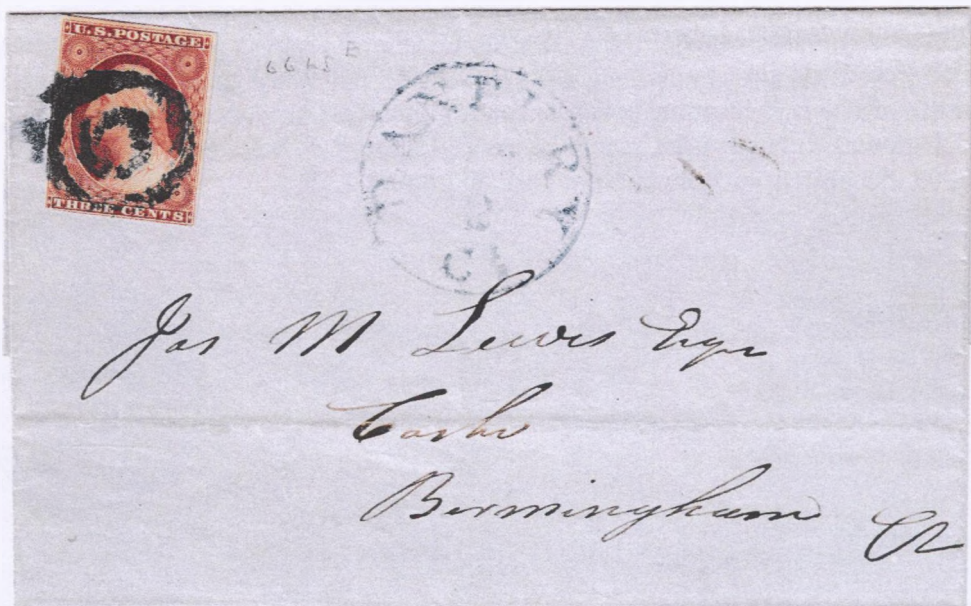 U.S. POSTAGE
THREE CENTS
DANBURY
CT
Jas M Lewis Esqr
Cashr
Birmingham Ct